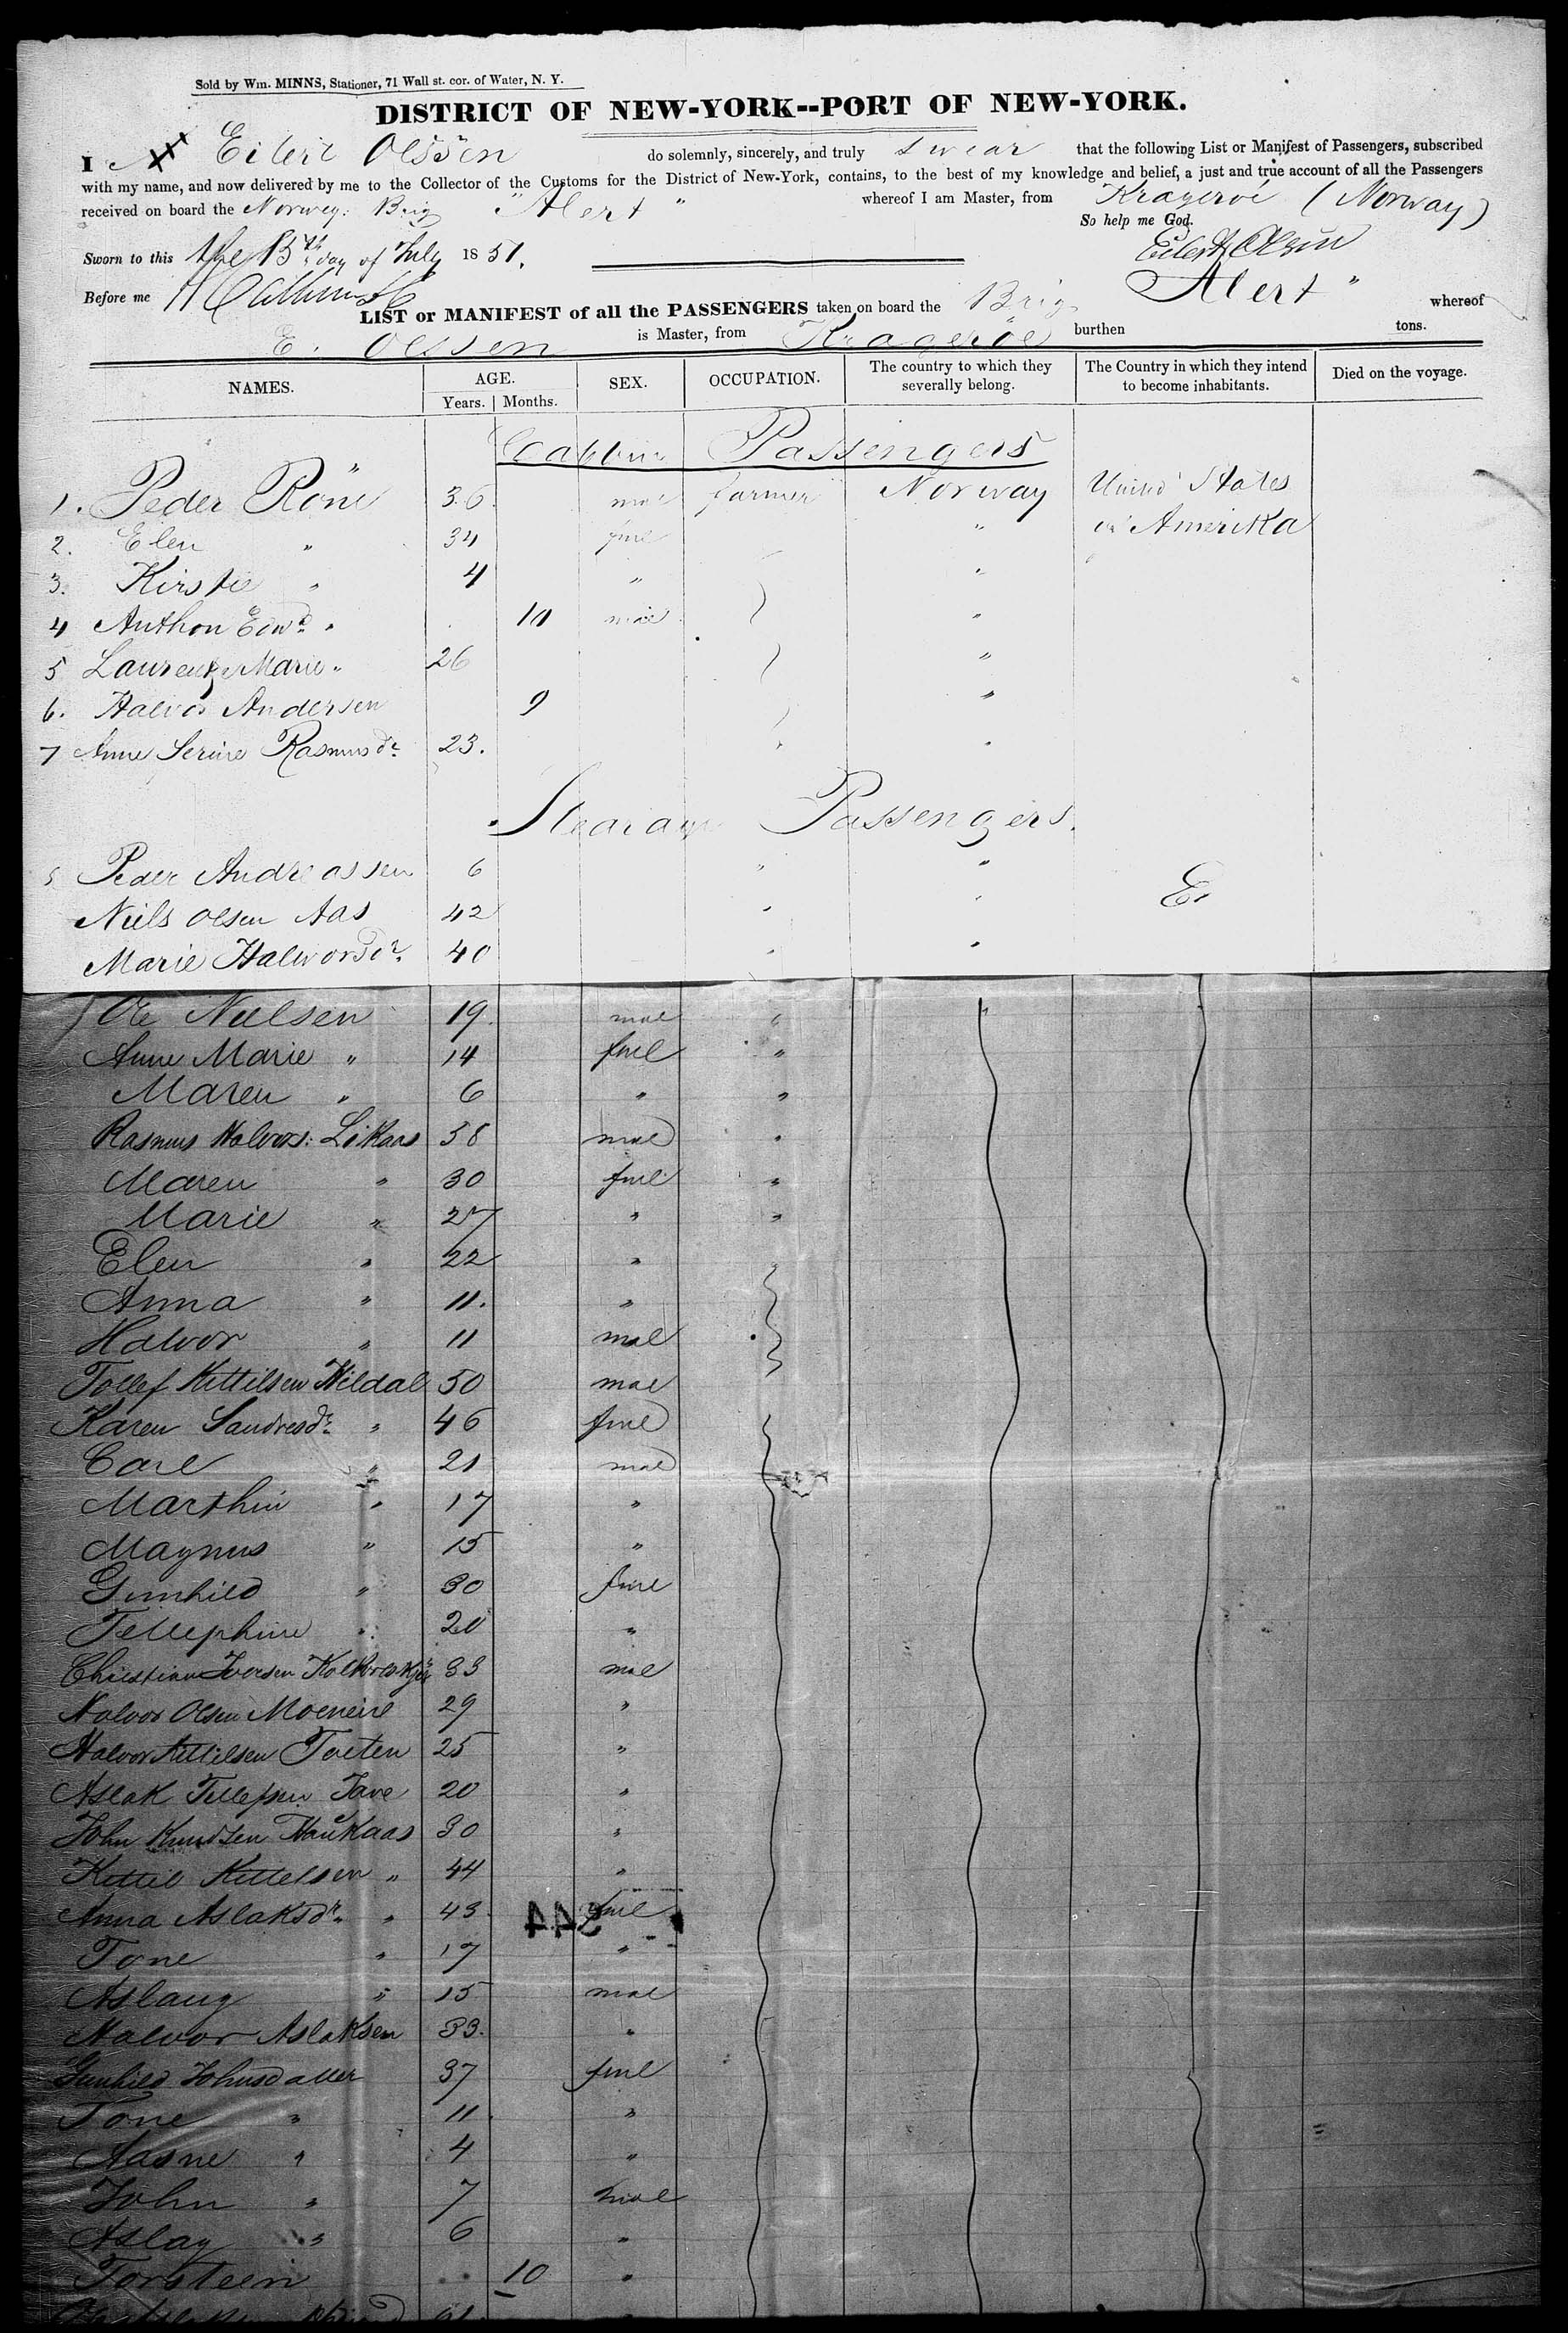 Sold by Wm. MINNS, Stationer, 71 Wall st. cor. of Water, N. Y.
DISTRICT OF NEW-YORK--PORT OF NEW-YORK.
I Eilert Olssen do solemnly, sincerely, and truly swear that the following List or Manifest of Passengers, subscribed
with my name, and now delivered by me to the Collector of the Customs for the District of New-York, contains, to the best of my knowledge and belief, a just and true account of all the Passengers
received on board the Norweg: Brig "Alert" whereof I am Master, from Krageroe (Norway)
So help me God.
Sworn to this the 15th day of July 1851. Eilert Olsen
Before me
LIST or MANIFEST of all the PASSENGERS taken on board the Brig Alert" whereof
E. Olssen is Master, from Krageröe burthen tons.
NAMES. AGE. Years. Months. SEX. OCCUPATION. The country to which they severally belong. The Country in which they intend to become inhabitants. Died on the voyage.
Cabbin Passengers
1. Peder Röni 36. mal farmer Norway United States
2. Elen " 34 fml " in Amerika
3. Kirstie " 4 " "
4 Anthon Edwd. " 10 mal "
5 Laurentze Marie " 26 "
6. Halvor Andersen 9 "
7 Anne Serine Rasmusdr. 23. "
Stearage Passengers.
Peder Andreassen 6 " "
Niels Olsen Aas 42 " "
Marie Halvorsdr. 40 " "
Ole Nielsen 19. mal " "
Anne Marie " 14 fml "
Maren " 6 " "
Rasmus Halvors: Likaas 38 mal "
Maren " 30 fml "
Marie " 27 " "
Elen " 22 "
Anna " 11. "
Halvor " 11 mal
Tollef Kittilsen Hildal 50 mal
Karen Sandresdr. " 46 fml
Carl " 21 mal
Marthin " 17 "
Magnus " 15 "
Gunhild " 30 fml
Tellephine " 20 "
Christian Iversen 33 mal
Halvor Olsen 29 "
Halvor Kittilsen Tveten 25 "
Aslak Tellefsen Tave 20 "
John Knudsen Haukaas 30 "
Kittil Kittelsen " 44 "
Anna Aslaksdr. " 43. fml
Tone " 17 "
Aslaug " 15 mal
Halvor Aslaksen 33. "
Gunhild Johnsdatter 37 fml
Tone " 11 "
Aasne " 4 "
John " 7 mal
Aslag " 6 "
Torsteen 10 "